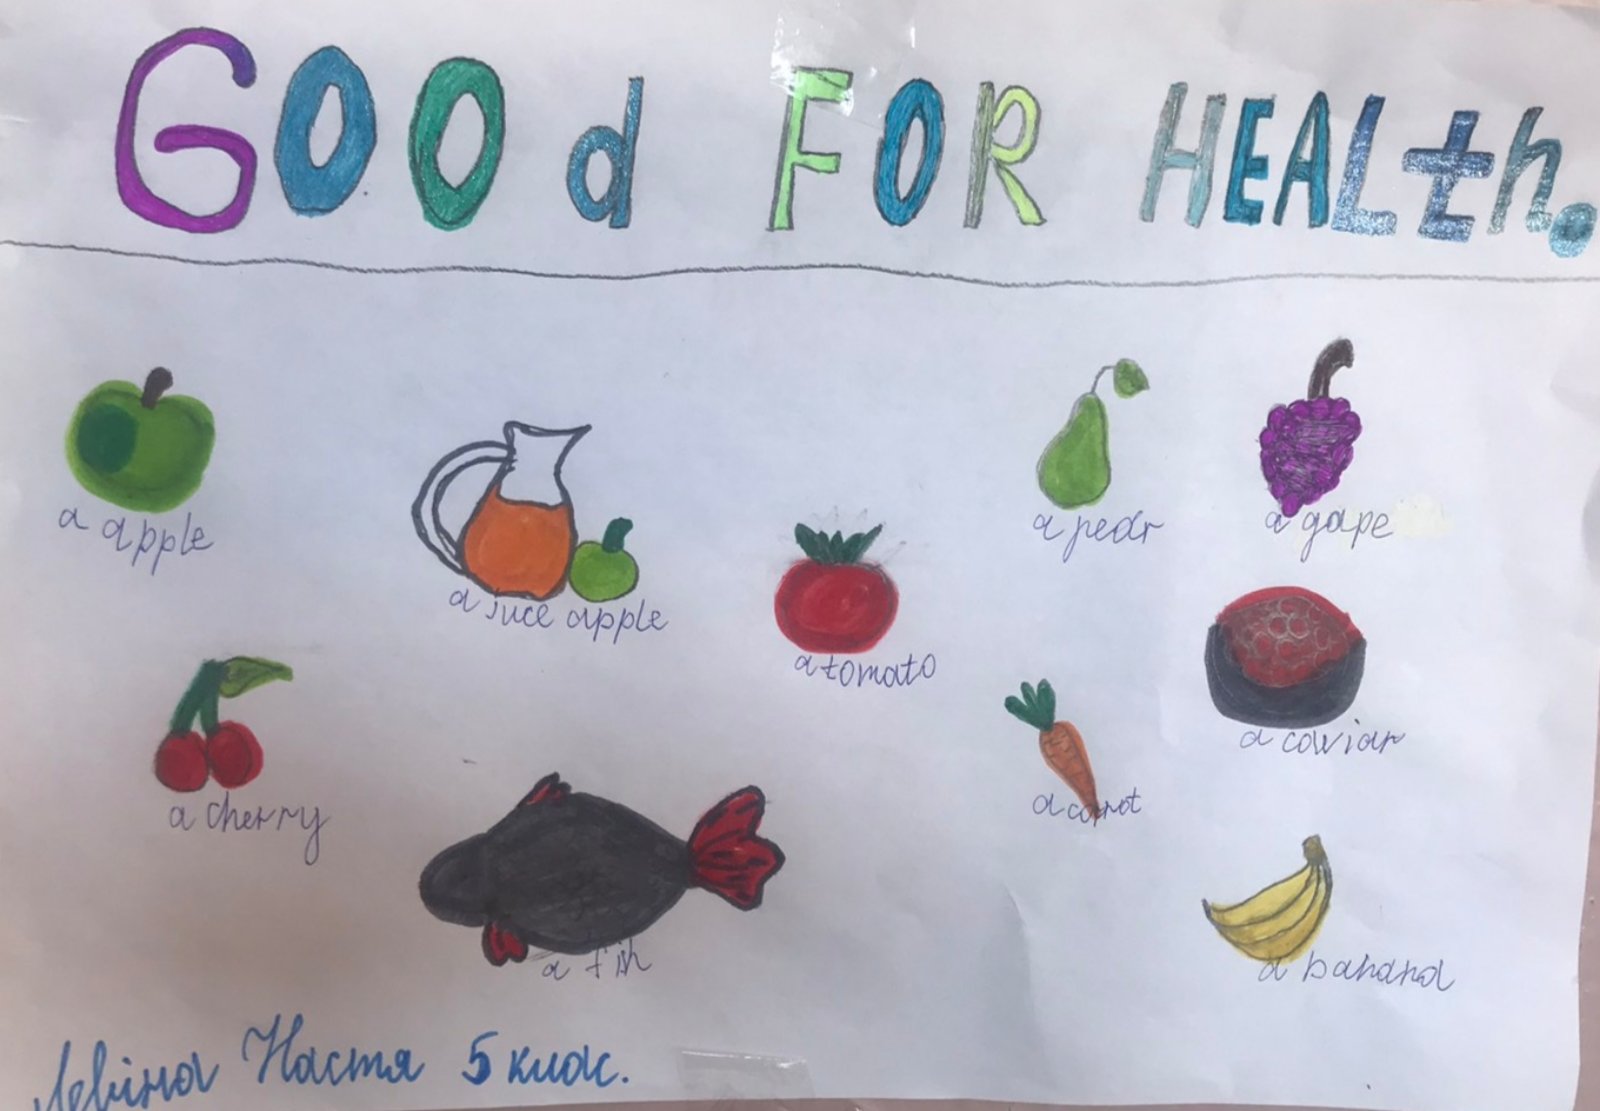 GOOd FOR HEALth.
a apple
a juce apple
a tomato
a pear
a gape
a cherry
a fih
a carrot
a cawiar
a banana
Настя 5 клас.